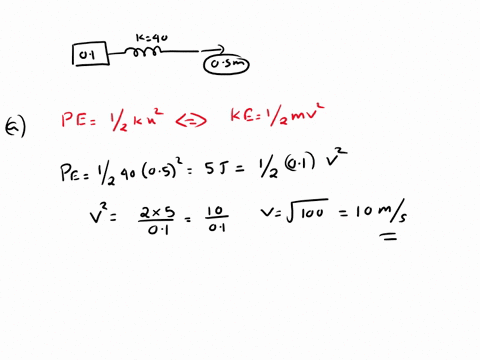 K=40
0.1
0.5m
(a) PE = 1/2 kx² <=> KE = 1/2 mv²
PE = 1/2 40 (0.5)² = 5J = 1/2 (0.1) v²
v² = 2×5/0.1 = 10/0.1 v = √100 = 10 m/s